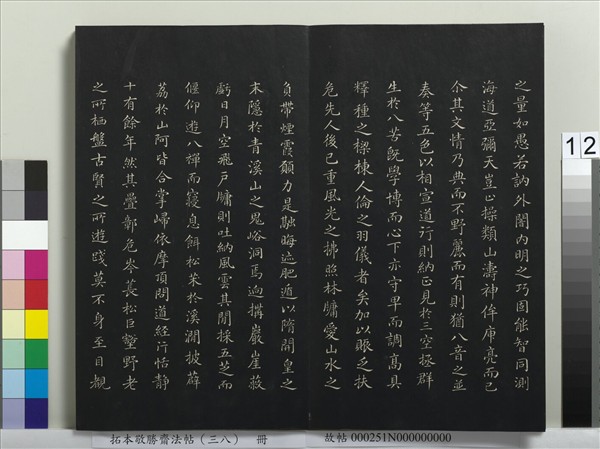 之量如愚若訥外闇內明之巧固能智同測
海道亞彌天豈止操類山濤神侔庾亮而已
介其文情乃典而不野麗而有則猶八音之並
奏等五色以相宣道行則納正見於三空拯群
生於八苦既學博而心下亦守卑而調高具
釋種之樑棟人倫之羽儀者矣加以賑乏扶
危先人後己重風光之拂照林牖愛山水之
負帶煙霞顛力是融晦迹肥遁以隋開皇之
末隱於青溪山之鬼峪洞焉迥搆巖崖蔽
虧日月空飛戶牖則吐納風雲其閒採五芝而
偃仰遊八禪而寢息餌松茱於溪澗披薜
荔於山阿皆合掌歸依摩頂問道經行恬靜
十有餘年然其疊嶂危岑萇松巨壑野老
之所栖盤古賢之所遊踐莫不身至目覩
12
拓本敬勝齋法帖（三八）　冊
故帖 000251N000000000